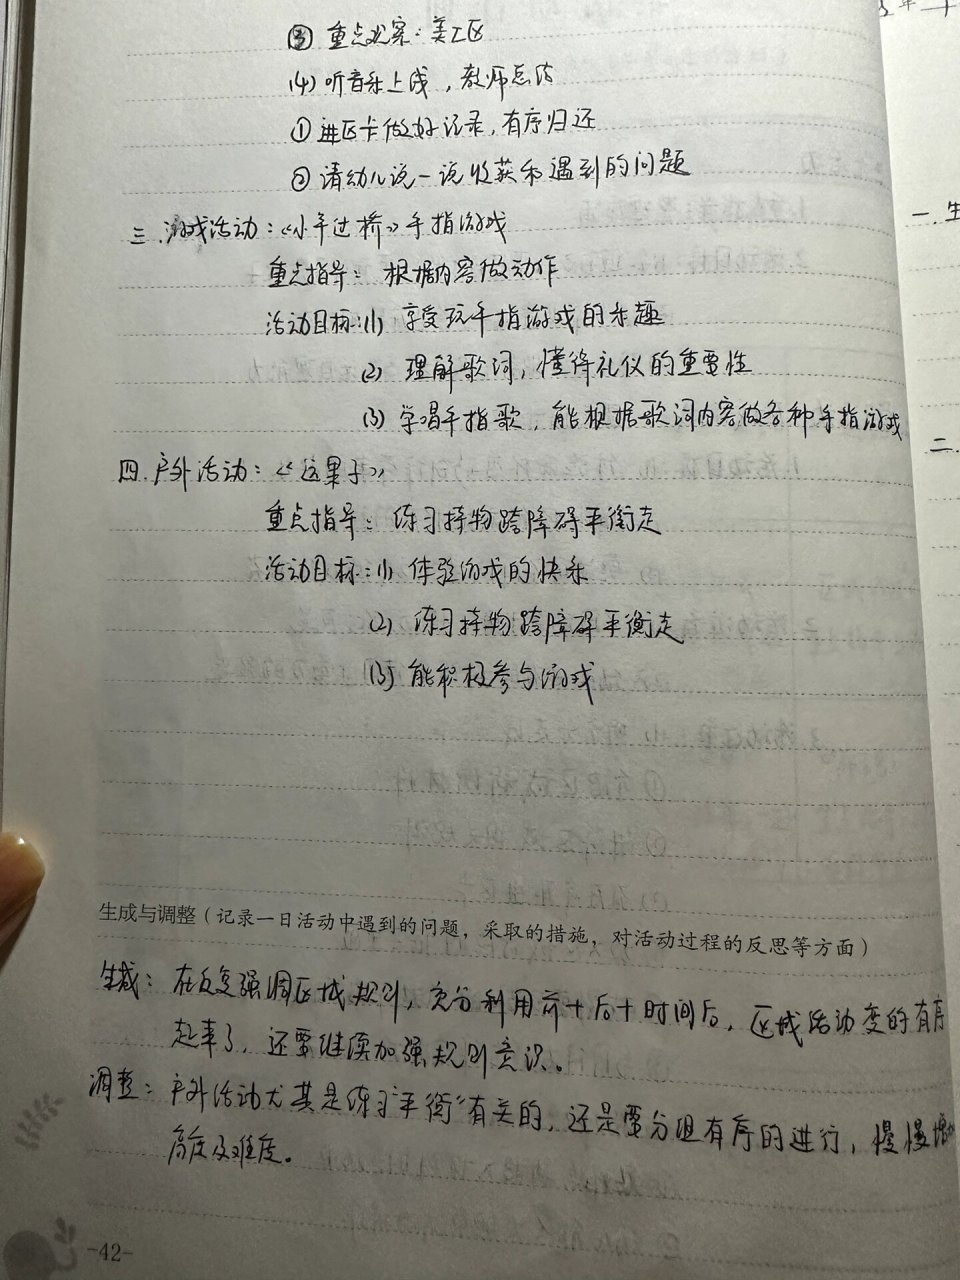 ③ 重点观察：美工区
(4) 听音乐上线，教师总结
① 进区卡做好记录，有序归还
② 请幼儿说一说收获和遇到的问题
三．游戏活动：《小手过桥》手指游戏
重点指导：根据内容做动作
活动目标：(1) 享受玩手指游戏的乐趣
(2) 理解歌词，懂得礼仪的重要性
(3) 学唱手指歌，能根据歌词内容做各种手指游戏
四．户外活动：《运果子》
重点指导：练习持物跨障碍平衡走
活动目标：(1) 体验游戏的快乐
(2) 练习持物跨障碍平衡走
(3) 能积极参与游戏
生成与调整（记录一日活动中遇到的问题，采取的措施，对活动过程的反思等方面）
生成：在反复强调区域规则，充分利用前十后十时间后，区域活动变的有序
起来了，还要继续加强规则意识。
调整：户外活动尤其是练习“平衡”有关的，还是要分组有序的进行，慢慢增加
高度及难度。
-42-
一．生
二．